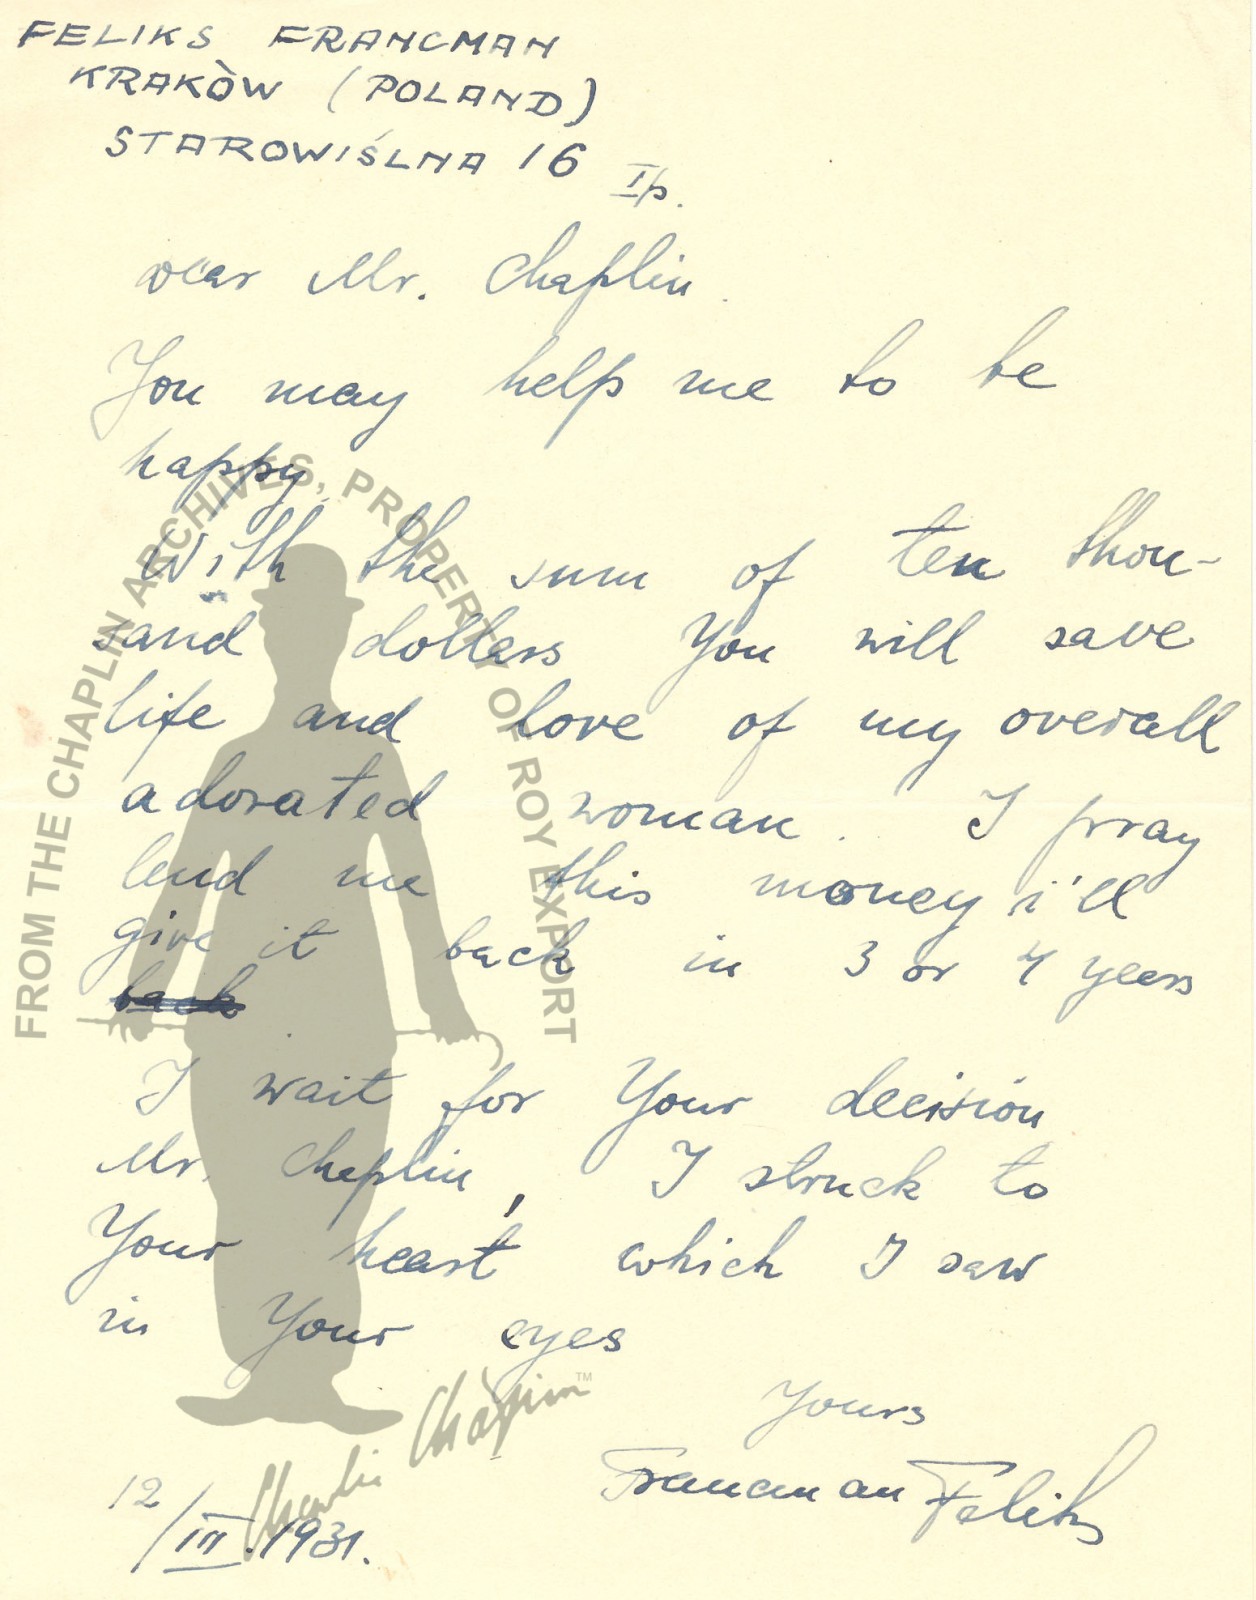 FELIKS FRANCMAN
KRAKÒW (POLAND)
STAROWIŚLNA 16 I p.
Dear Mr. Chaplin.
You may help me to be
happy.
With the sum of ten thou-
sand dollars You will save
life and love of my overall
adorated woman. I pray
lend me this money i'll
give it back in 3 or 4 years
back
I wait for Your decision
Mr. Chaplin, I struck to
Your heart which I saw
in Your eyes
Yours
Francman Feliks
12/III.1931.
FROM THE CHAPLIN ARCHIVES, PROPERTY OF ROY EXPORT
Charlie Chaplin TM